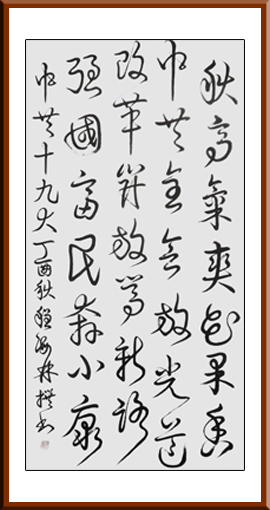 秋高氣爽花果香
中共全會放光芒
改革開放新路
强國富民奔小康
中共十九大丁酉秋林撰书